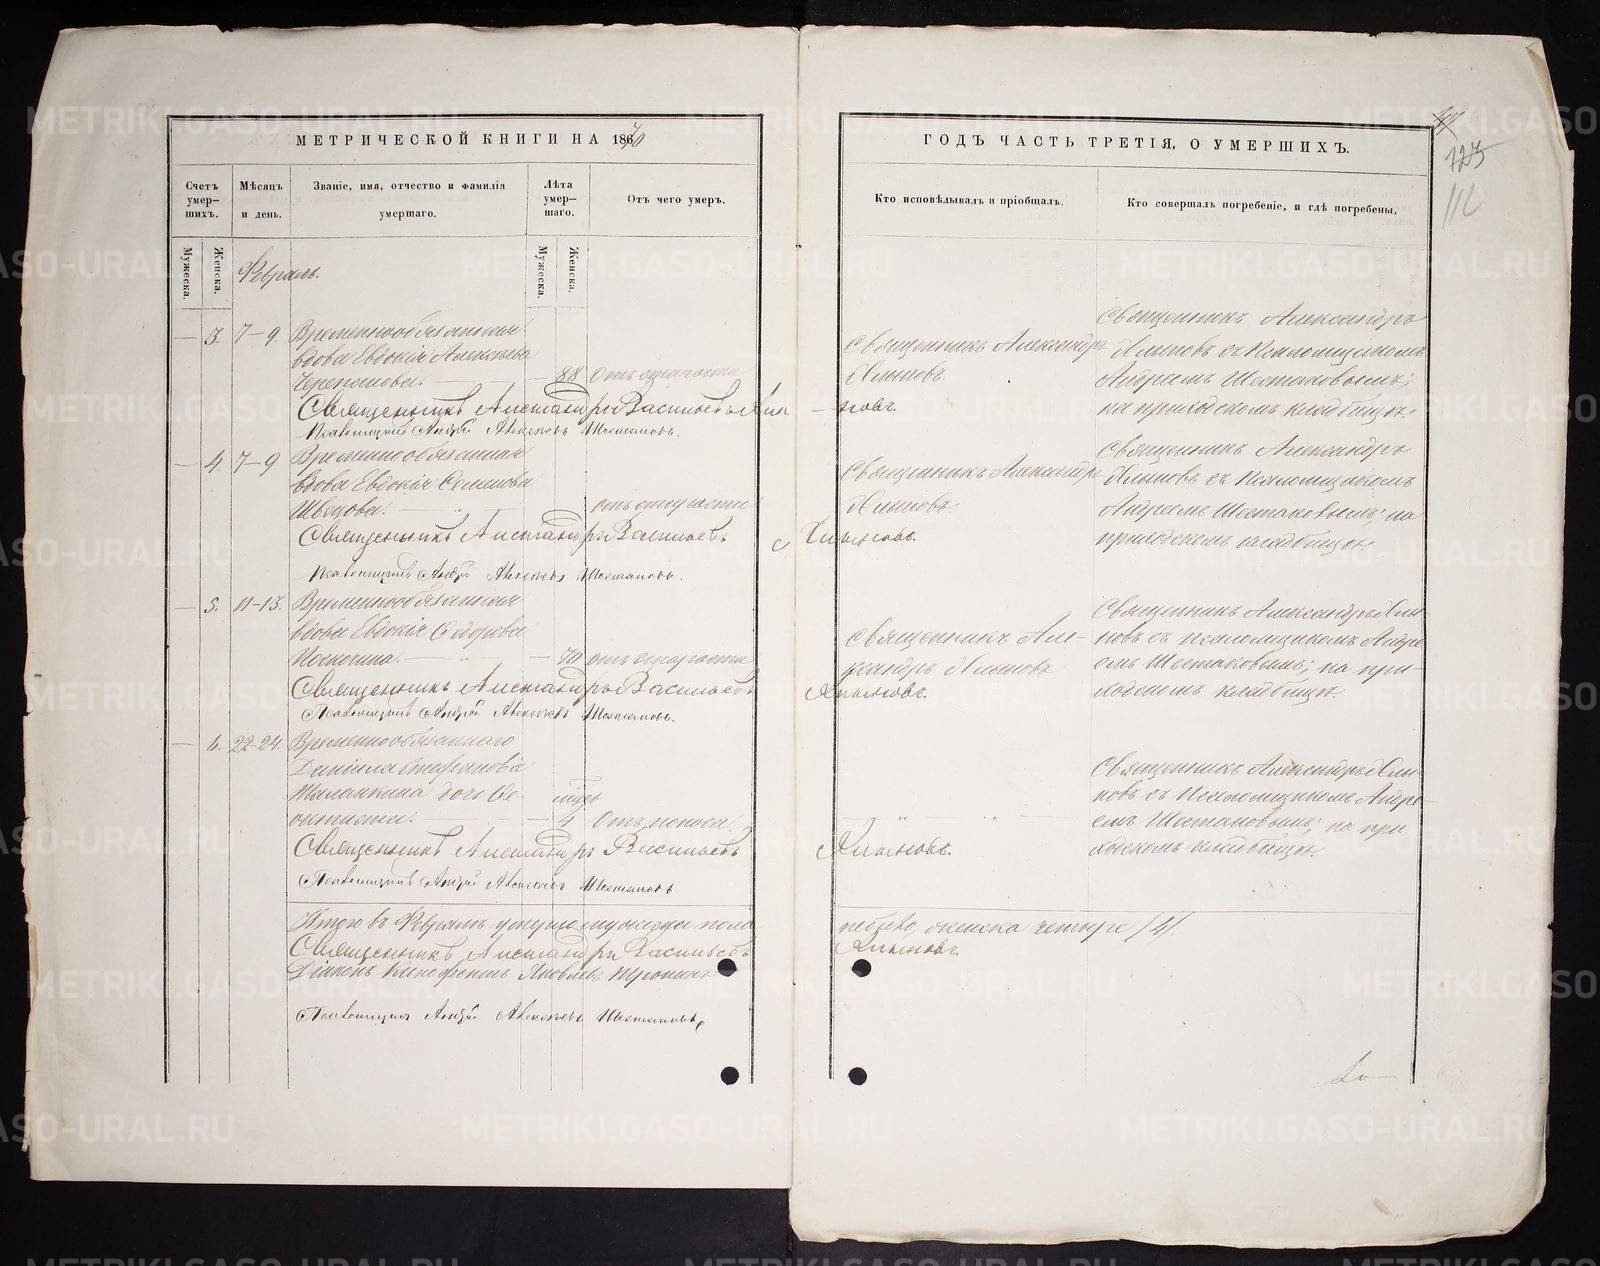 МЕТРИЧЕСКОЙ КНИГИ НА 1870
ГОДЪ ЧАСТЬ ТРЕТІЯ, О УМЕРШИХЪ.
125
112
Счетъ умер-шихъ.
Мѣсяцъ и день.
Званіе, имя, отчество и фамилія умершаго.
Лѣта умер-шаго.
Отъ чего умеръ.
Кто исповѣдывалъ и пріобщалъ.
Кто совершалъ погребеніе, и гдѣ погребены.
Мужеска.
Женска.
Мужеска.
Женска.
Февраль.
— 3. 7–9. Временнообязанная
вдова Евдокія Алексѣева
88 отъ старости
Священникъ Александръ
Хлыновъ.
Священникъ Александръ
Хлыновъ съ Псаломщикомъ
Андреемъ Шестаковымъ;
на приходскомъ кладбищѣ.
Священникъ Александръ Васильевъ Хлы — новъ.
Псаломщикъ Андрей Алексѣевъ Шестаковъ.
— 4. 7–9 Временнообязанная
вдова Евдокія Семенова
Швецова. отъ старости
Священникъ Александръ
Хлыновъ.
Священникъ Александръ
Хлыновъ съ Псаломщикомъ
Андреемъ Шестаковымъ; на
приходскомъ кладбищѣ.
Священникъ Александръ Васильевъ Хлыновъ.
Псаломщикъ Андрей Алексѣевъ Шестаковъ.
— 5. 11–13. Временнообязанная
вдова Евдокія Ѳедорова
Поскочина. — 70 отъ старости
Священникъ Але-
ксандръ Хлыновъ
Священникъ Александръ Хлы-
новъ съ Псаломщикомъ Андре-
емъ Шестаковымъ; на при-
ходскомъ кладбищѣ.
Священникъ Александръ Васильевъ Хлыновъ.
Псаломщикъ Андрей Алексѣевъ Шестаковъ.
— 6. 22–24. Временнообязаннаго
Даніила Стефанова
дочь Ѳе-
октиста. — 4 отъ поноса.
Священникъ Александръ Хлы-
новъ съ Псаломщикомъ Андре-
емъ Шестаковымъ; на при
ходскомъ кладбищѣ.
Священникъ Александръ Васильевъ Хлыновъ.
Псаломщикъ Андрей Алексѣевъ Шестаковъ
Итого въ Февралѣ умерло мужеска пола
не было, женска четыре /4/.
Священникъ Александръ Васильевъ Хлыновъ.
Діаконъ Ксенофонтъ Яковлевъ
Псаломщикъ Андрей Алексѣевъ Шестаковъ.
METRIKI.GASO-URAL.RU